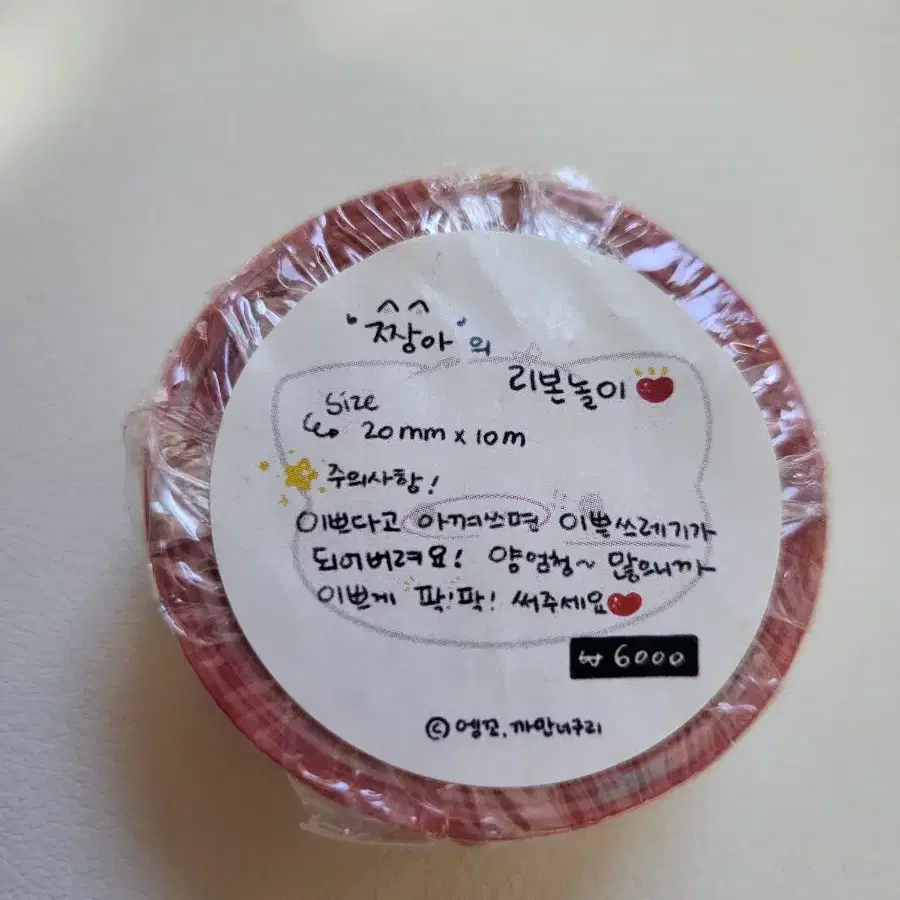 '짱아'의
리본놀이
Size
20mm x 10m
주의사항!
이쁘다고 아껴쓰면 이쁠쓰레기가
되어버려요! 양엄청~ 많으니까
이쁘게 팍!팍! 써주세요
₩ 6000
© 엥꼬, 까만너구리